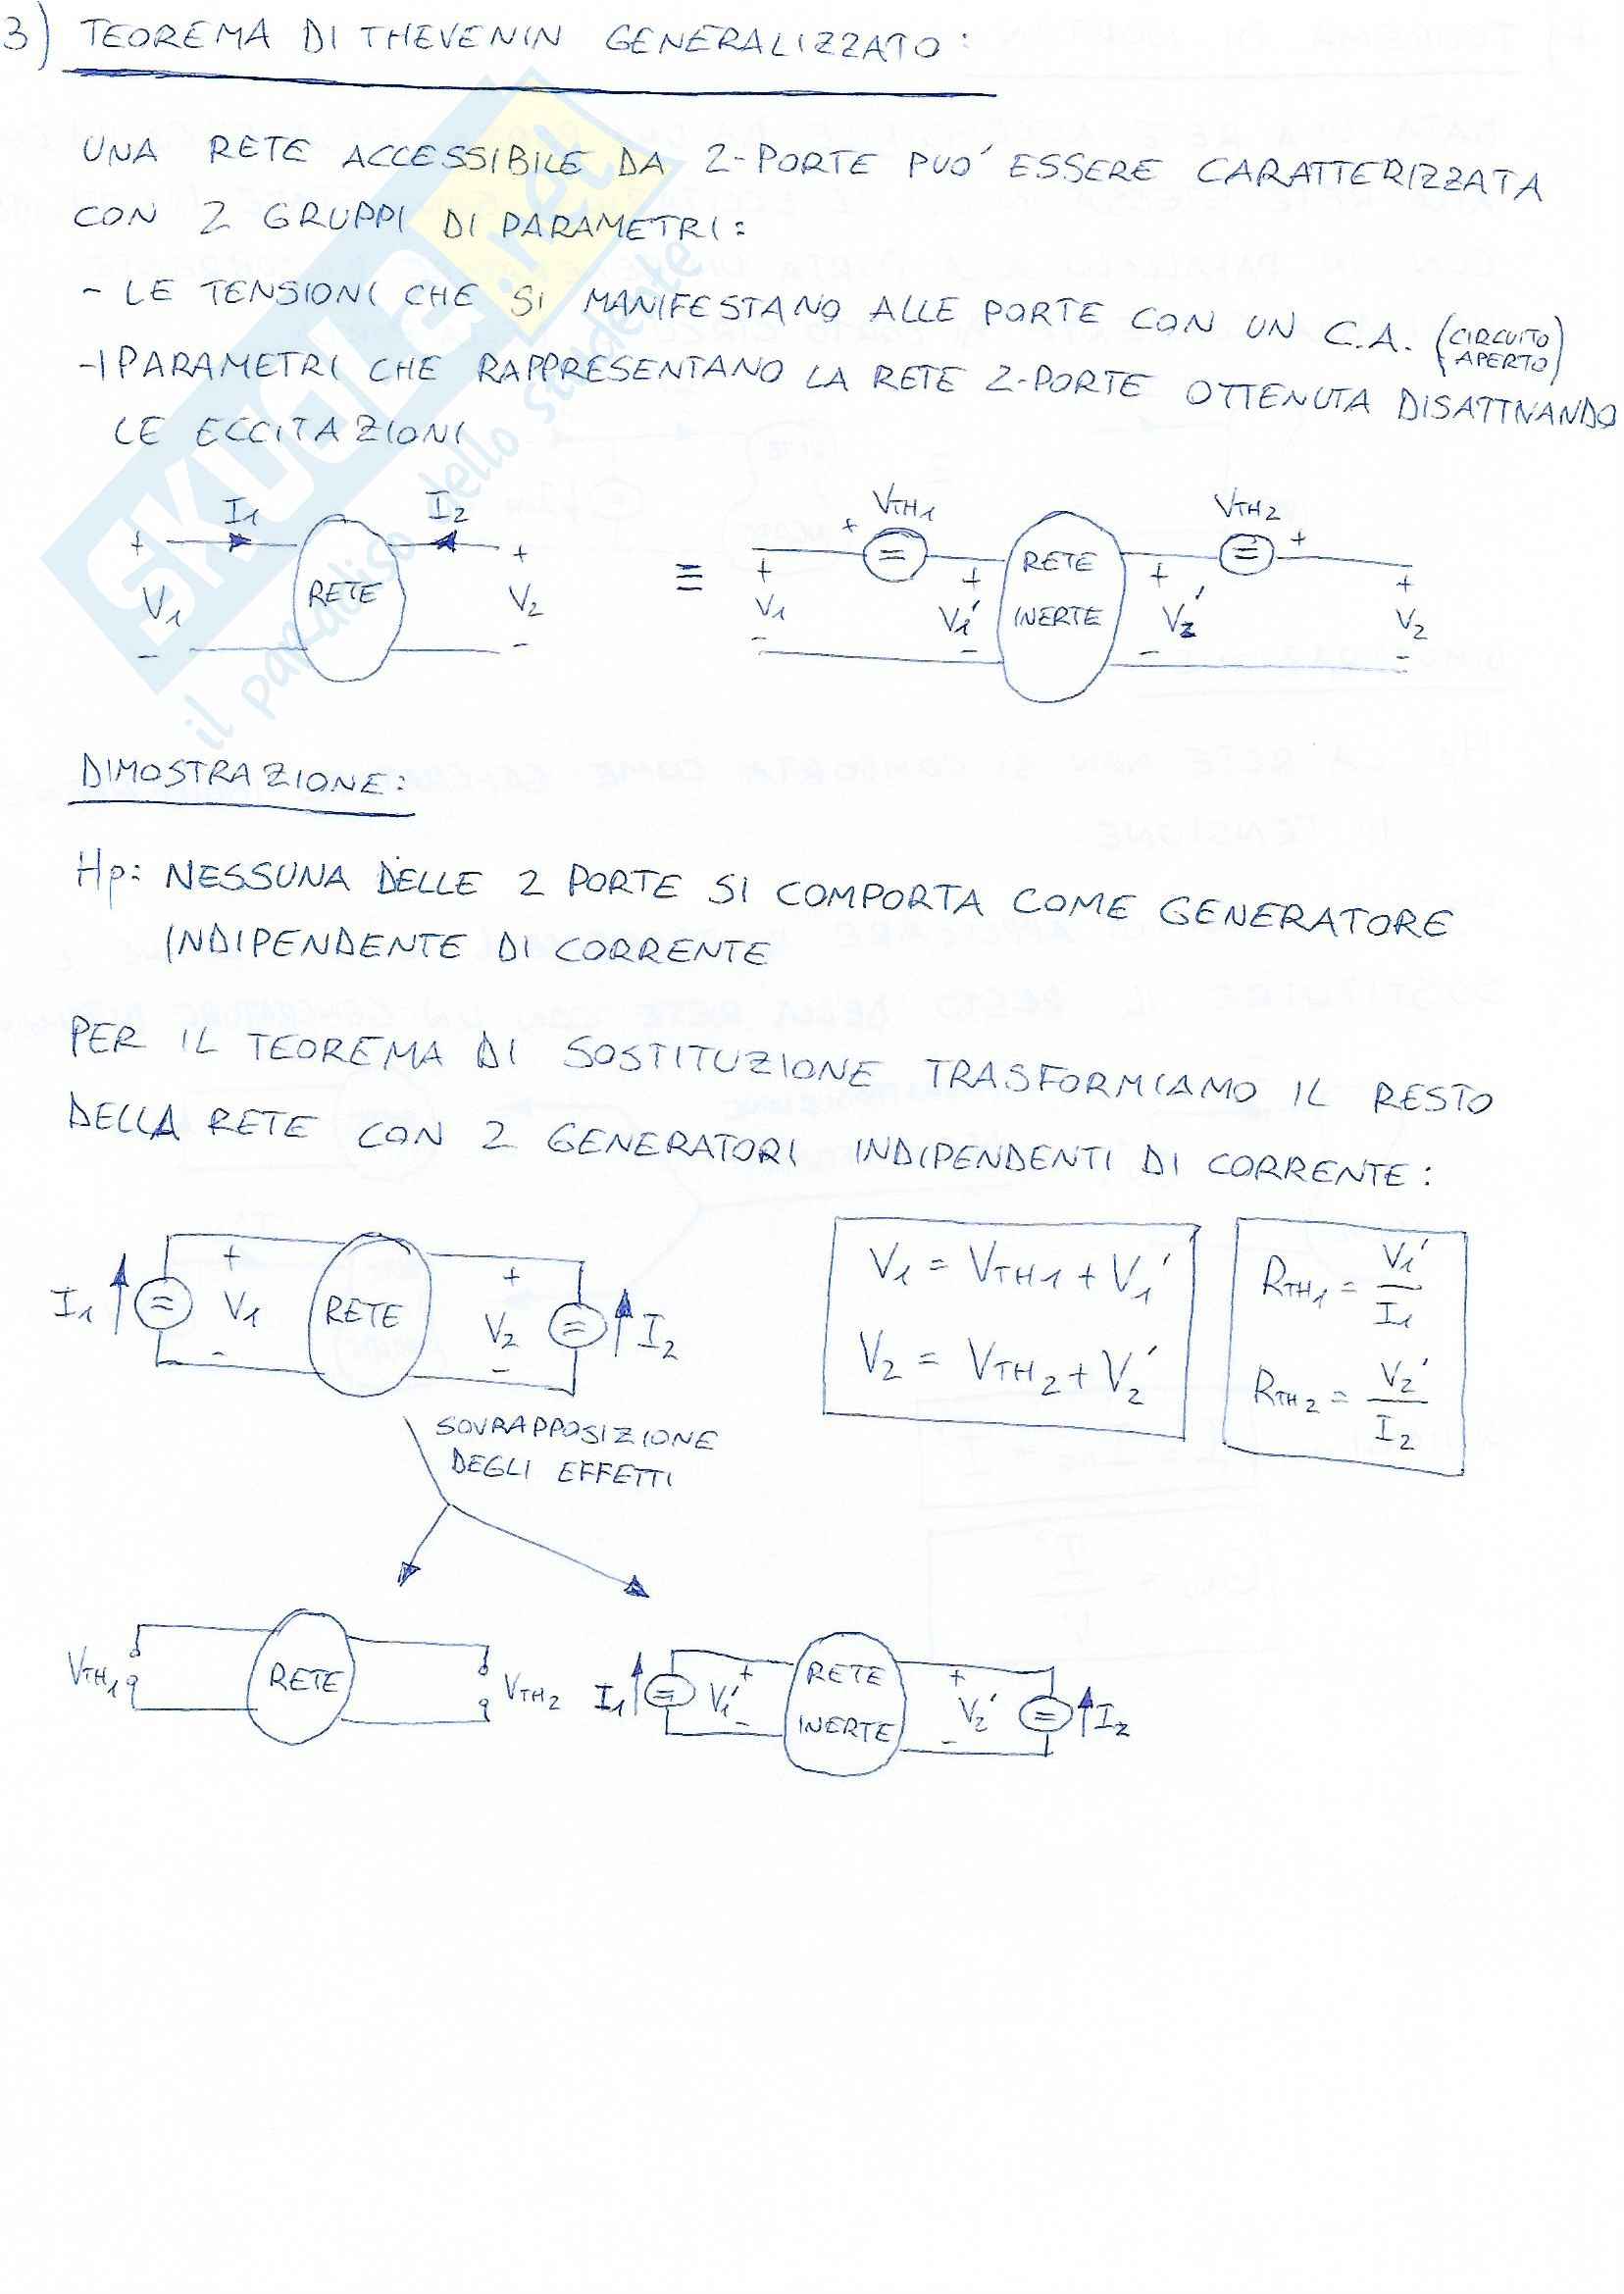 3) TEOREMA DI THEVENIN GENERALIZZATO:
UNA RETE ACCESSIBILE DA 2-PORTE PUO' ESSERE CARATTERIZZATA
CON 2 GRUPPI DI PARAMETRI:
- LE TENSIONI CHE SI MANIFESTANO ALLE PORTE CON UN C.A. (CIRCUITO APERTO)
- I PARAMETRI CHE RAPPRESENTANO LA RETE 2-PORTE OTTENUTA DISATTIVANDO
LE ECCITAZIONI
I1 I2 VTH1 VTH2
+ + + +
V1 RETE V2 ≡ + V1 + V1' RETE INERTE + V2' + V2
- - - - - -
DIMOSTRAZIONE:
Hp: NESSUNA DELLE 2 PORTE SI COMPORTA COME GENERATORE
INDIPENDENTE DI CORRENTE
PER IL TEOREMA DI SOSTITUZIONE TRASFORMIAMO IL RESTO
DELLA RETE CON 2 GENERATORI INDIPENDENTI DI CORRENTE:
I1 = + V1 - RETE + V2 - = I2
V1 = VTH1 + V1'
V2 = VTH2 + V2'
RTH1 = V1' / I1
RTH2 = V2' / I2
SOVRAPPOSIZIONE
DEGLI EFFETTI
VTH1 RETE VTH2
I1 = + V1' - RETE INERTE + V2' - = I2
SKUOLA.net
il paradiso dello studente